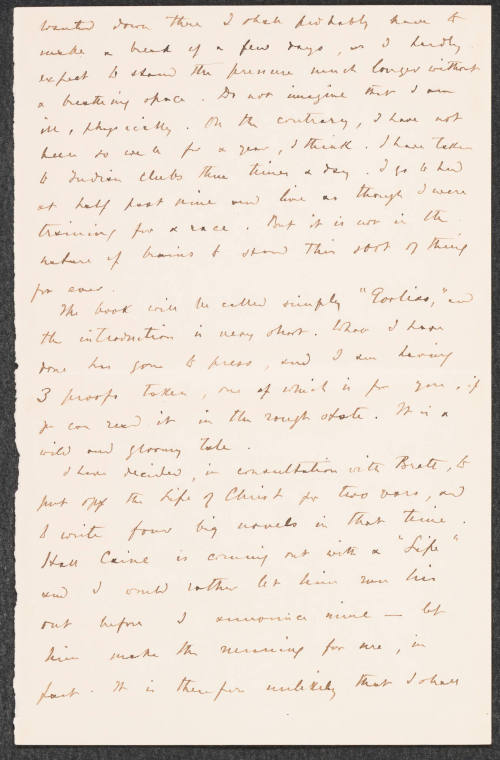 wanted down there I shall probably have to
make a break of a few days, as I hardly
expect to stand the pressure much longer without
a breathing space. Do not imagine that I am
ill, physically. On the contrary, I have not
been so well for a year, I think. I have taken
to Indian clubs three times a day. I go to bed
at half past nine and live as though I were
training for a race. But it is not in the
nature of brains to stand this sort of thing
for ever.
The book will be called simply "Zoroaster," and
the introduction is very short. What I have
done has gone to press, and I am having
3 proofs taken, one of which is for you, if
you can read it in the rough state. It is a
wild and gloomy tale.
I have decided, in consultation with Brett, to
put off the Life of Christ for two years, and
to write four big novels in that time.
Hall Caine is coming out with a "Life"
and I would rather let him run his
out before I announce mine — let
him make the running for me, in
fact. It is therefore unlikely that I shall